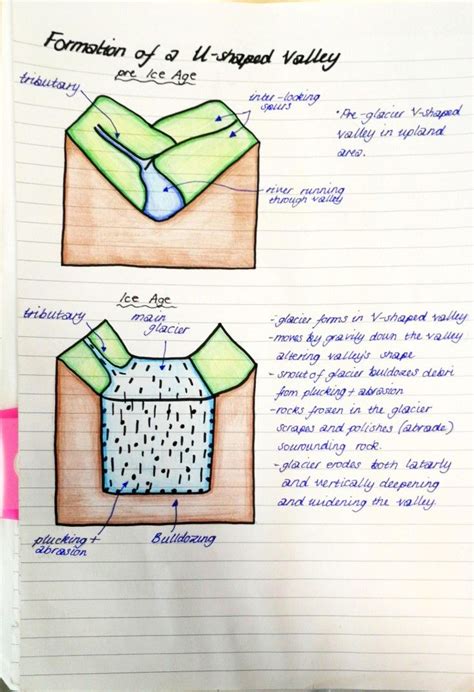 Formation of a U-shaped Valley
pre Ice Age
tributary
inter-locking
spurs
• Pre-glacier V-shaped
valley in upland
area.
river running
through valley
Ice Age
tributary
main
glacier
- glacier forms in V-shaped valley
- moves by gravity down the valley
altering valley's shape
- snout of glacier buldozes debri
from plucking + abrasion
- rocks frozen in the glacier
scrapes and polishes (abrade)
sourounding rock.
- glacier erodes both latarly
and vertically deepening
and widening the valley.
plucking +
abrasion
Bulldozing